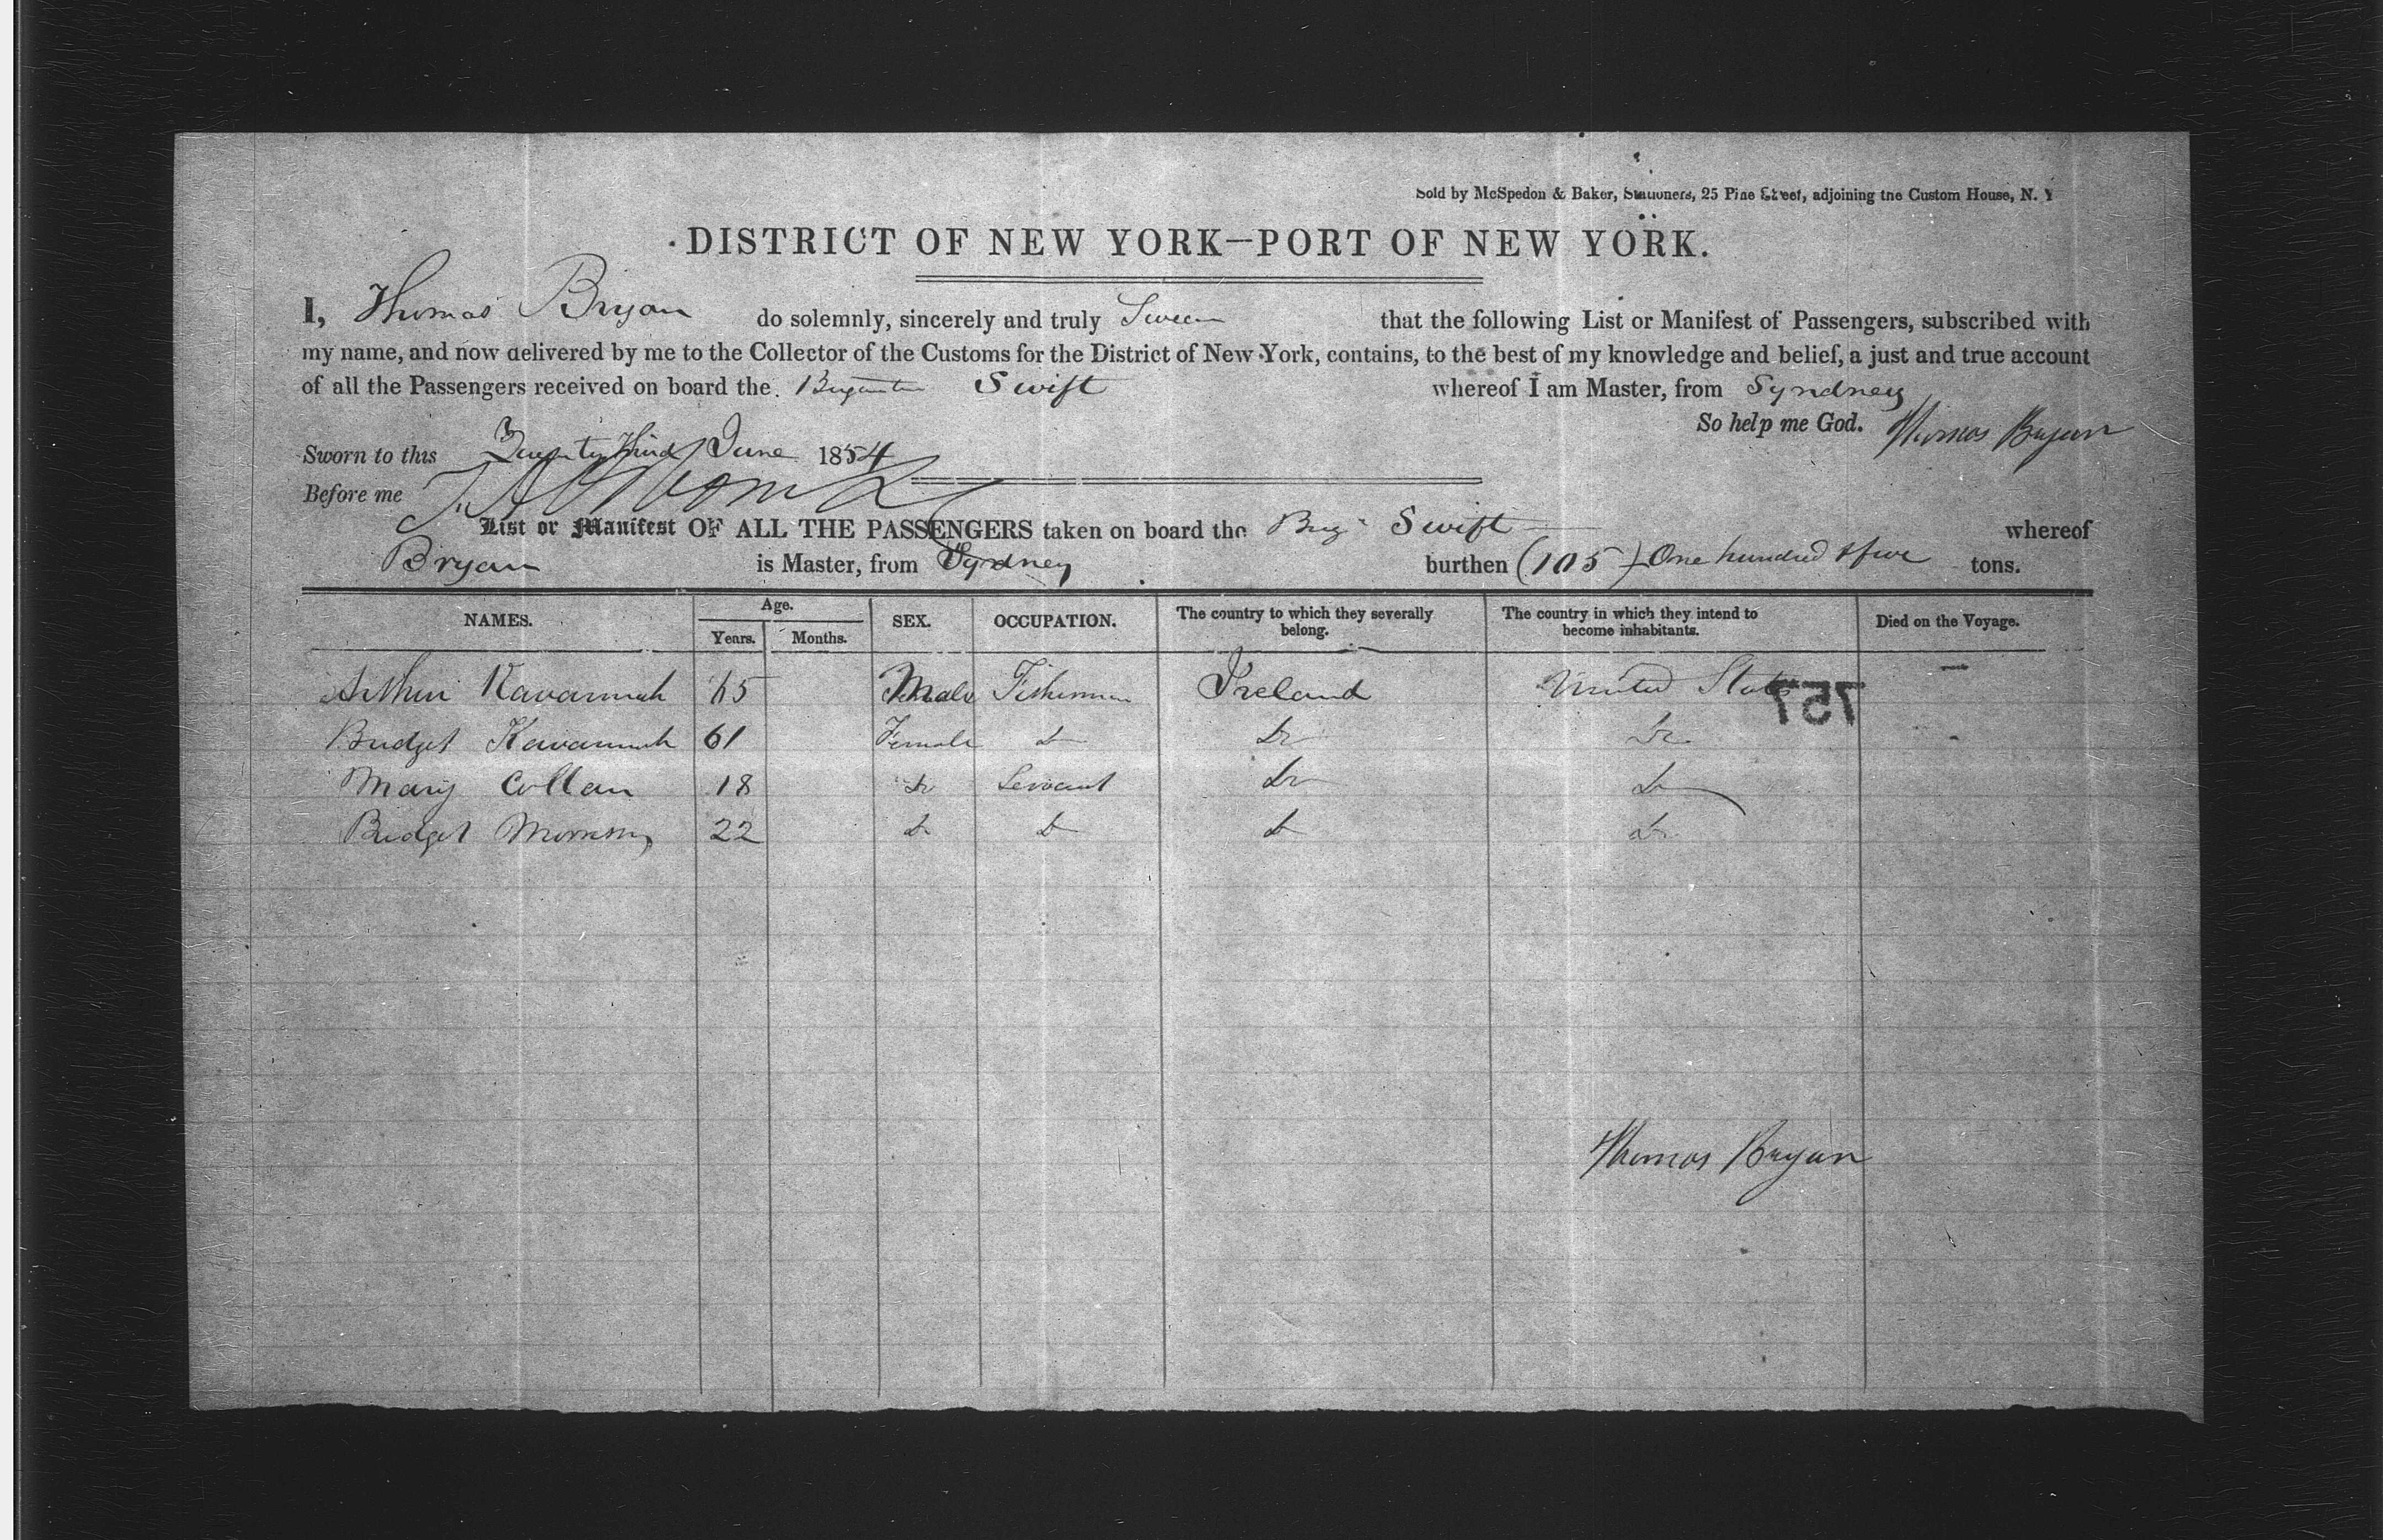 Sold by McSpedon & Baker, Stationers, 25 Pine Street, adjoining the Custom House, N. Y
DISTRICT OF NEW YORK—PORT OF NEW YORK.
I, Thomas Bryan do solemnly, sincerely and truly Swear that the following List or Manifest of Passengers, subscribed with
my name, and now delivered by me to the Collector of the Customs for the District of New York, contains, to the best of my knowledge and belief, a just and true account
of all the Passengers received on board the Brigantine Swift whereof I am Master, from Syndney
So help me God. Thomas Bryan
Sworn to this Twenty third June 1854
Before me
List or Manifest OF ALL THE PASSENGERS taken on board the Brig Swift whereof
Bryan is Master, from Sydney burthen (105) One hundred & five tons.
NAMES. Age. Years. Months. SEX. OCCUPATION. The country to which they severally belong. The country in which they intend to become inhabitants. Died on the Voyage.
Arthur Kavannah 65 Male Fisherman Ireland United States —
757
Bridget Kavannah 61 Female Do Do Do
Mary Collan 18 Do Servant Do Do
Bridget 22 Do Do Do Do
Thomas Bryan